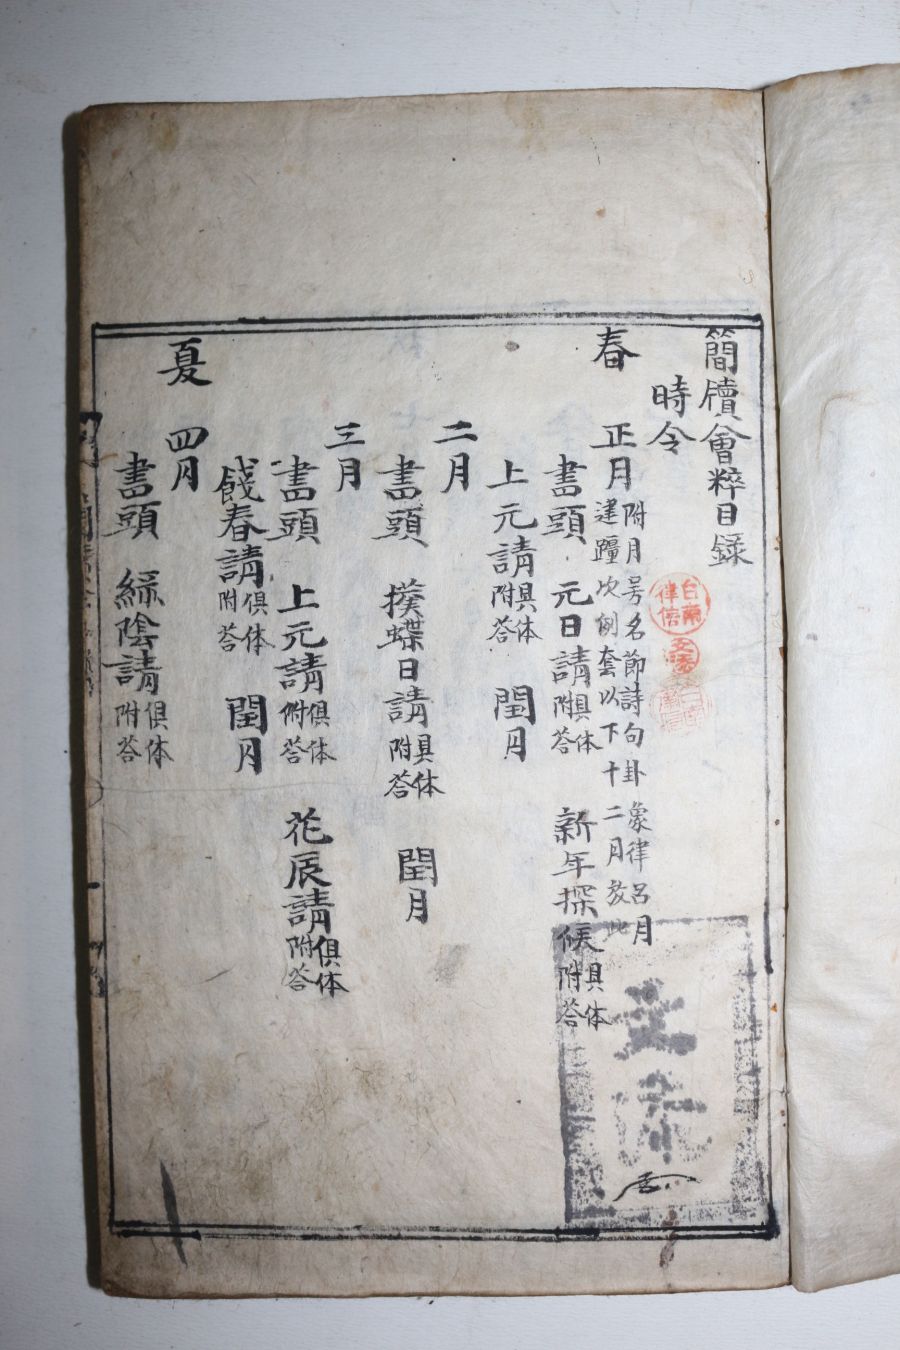 簡牘會粹目录
時令
春 正月 附月号名節詩句卦象律呂月建躔次例套以下十二月放此
書頭 元日請 附答俱体 新年探候 附答俱体
上元請 附答俱体 閏月
二月
書頭 撲蝶日請 附答俱体 閏月
三月
書頭 上元請 附答俱体 花辰請 附答俱体
餞春請 附答俱体 閏月
夏 四月
書頭 綠陰請 附答俱体